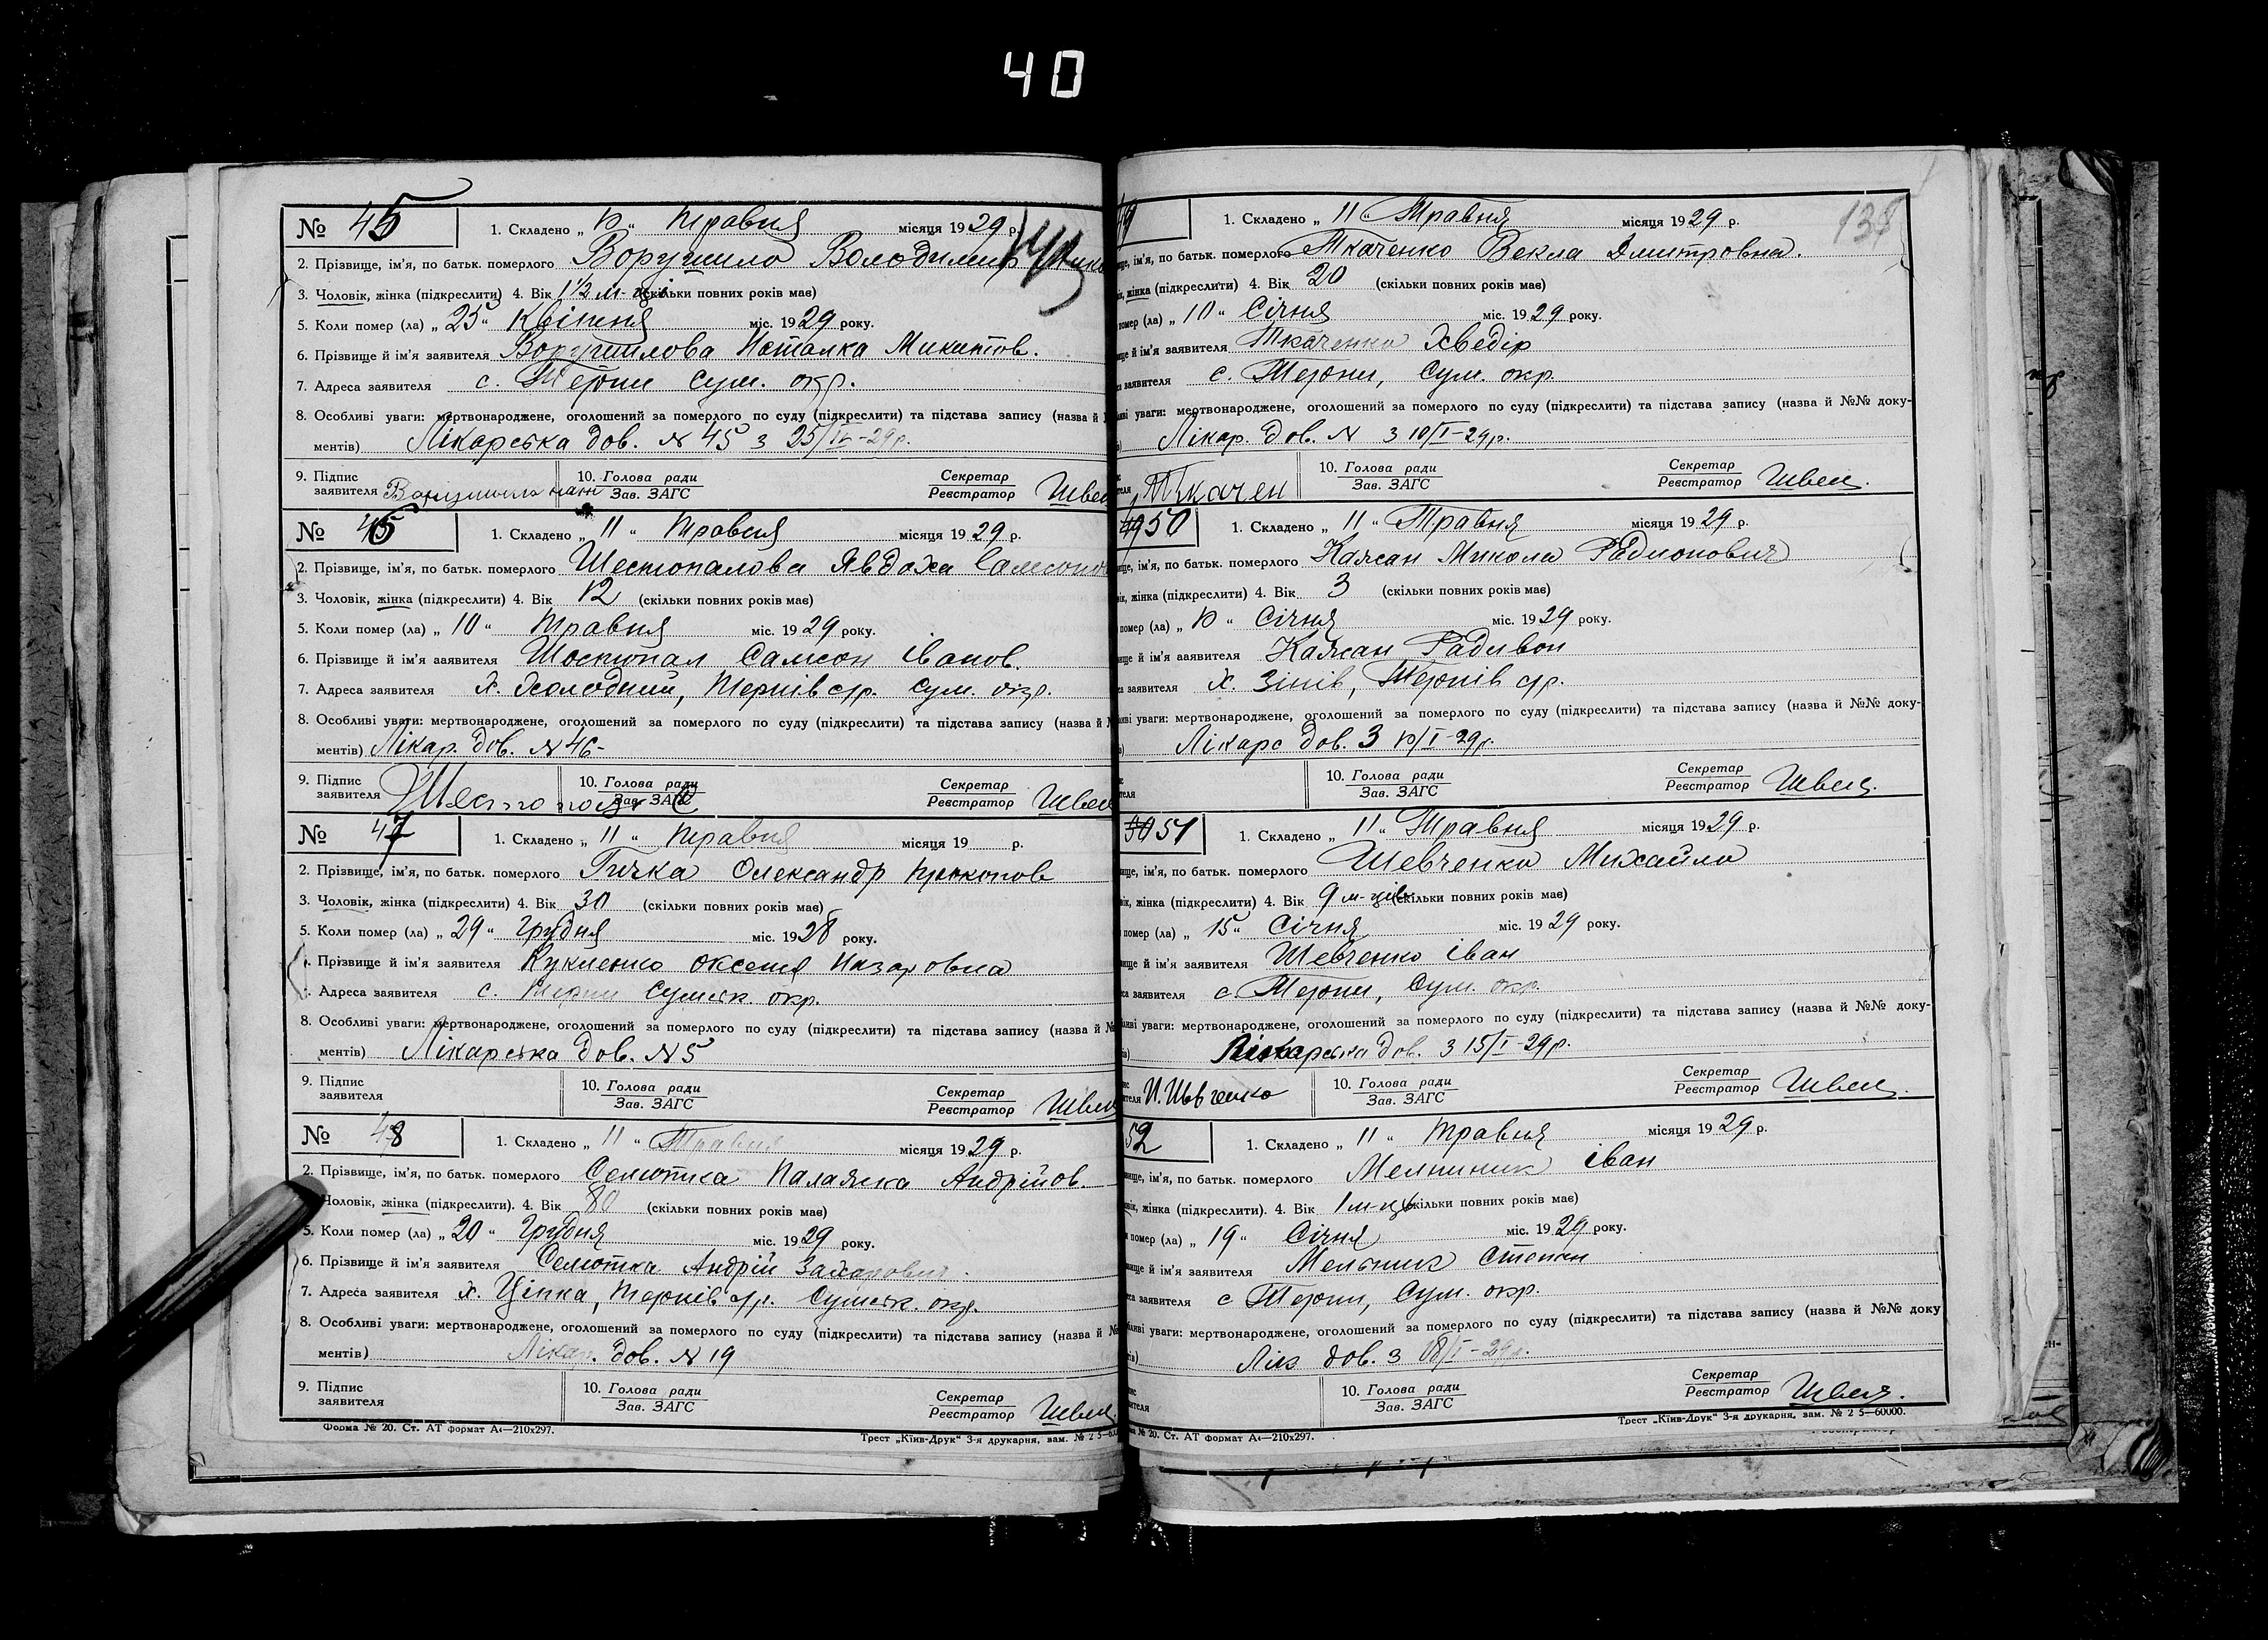 40
№ 45 1. Складено „ 10 “ травня місяця 1929 р.
2. Прізвище, ім'я, по батьк. померлого Ворушило Володимир
3. Чоловік, жінка (підкреслити) 4. Вік 1½ м- (скільки повних років має)
5. Коли помер (ла) „ 25 “ Квітня міс. 1929 року.
6. Прізвище й ім'я заявителя Ворушилова Наталка Микитов.
7. Адреса заявителя с. Терни Сум. окр.
8. Особливі уваги: мертвонароджене, оголошений за померлого по суду (підкреслити) та підстава запису (назва й
ментів) Лікарська дов. № 45 з 25/IV-29р.
9. Підпис заявителя 10. Голова ради Зав. ЗАГС Секретар Реєстратор Швец
№ 46 1. Складено „ 11 “ травня місяця 1929 р.
2. Прізвище, ім'я, по батьк. померлого Шестопалова Явдоха
3. Чоловік, жінка (підкреслити) 4. Вік 12 (скільки повних років має)
5. Коли помер (ла) „ 10 “ травня міс. 1929 року.
6. Прізвище й ім'я заявителя Шостопал Самсон Іванов.
7. Адреса заявителя х. Холодний, Тернів с/р. Сум. окр.
8. Особливі уваги: мертвонароджене, оголошений за померлого по суду (підкреслити) та підстава запису (назва й
ментів) Лікар. дов. № 46-
9. Підпис заявителя Шестопал С 10. Голова ради Зав. ЗАГС Секретар Реєстратор Швец
№ 47 1. Складено „ 11 “ травня місяця 19 р.
2. Прізвище, ім'я, по батьк. померлого Гичка Олександр Прокопов
3. Чоловік, жінка (підкреслити) 4. Вік 30 (скільки повних років має)
5. Коли помер (ла) „ 29 “ грудня міс. 1928 року.
Прізвище й ім'я заявителя Кукленко Оксеня Назаровна
Адреса заявителя с. Терни Сумськ. окр.
8. Особливі уваги: мертвонароджене, оголошений за померлого по суду (підкреслити) та підстава запису (назва й №
ментів) Лікарська дов. № 5
9. Підпис заявителя 10. Голова ради Зав. ЗАГС Секретар Реєстратор Швец
№ 48 1. Складено „ 11 “ Травня місяця 1929 р.
2. Прізвище, ім'я, по батьк. померлого Семотка Палажка Андрійов.
Чоловік, жінка (підкреслити). 4. Вік 80 (скільки повних років має)
5. Коли помер (ла) „ 20 “ грудня міс. 1929 року.
6. Прізвище й ім'я заявителя Семотка Андрій Захарович.
7. Адреса заявителя х. Ціпка, Тернів с/р. Сумськ. окр.
8. Особливі уваги: мертвонароджене, оголошений за померлого по суду (підкреслити) та підстава запису (назва й №
ментів) Лікар. дов. № 19
9. Підпис заявителя 10. Голова ради Зав. ЗАГС Секретар Реєстратор Швец
Форма № 20. Ст. АТ формат А4—210х297. Трест „Київ-Друк“ 3-я друкарня, зам. № 2 5—60
49 1. Складено „ 11 “ Травня місяця 1929 р.
ім'я, по батьк. померлого Ткаченко Векла Дмитровна.
жінка (підкреслити) 4. Вік 20 (скільки повних років має)
помер (ла) „ 10 “ Січня міс. 1929 року.
й ім'я заявителя Ткаченко Хведір
заявителя с. Терни, Сум. окр.
уваги: мертвонароджене, оголошений за померлого по суду (підкреслити) та підстава запису (назва й №№ доку-
Лікар. дов. № з 10/I-29р.
Ткачен 10. Голова ради Зав. ЗАГС Секретар Реєстратор Швец.
50 1. Складено „ 11 “ Травня місяця 1929 р.
ім'я, по батьк. померлого Кажан Микола Радионович
жінка (підкреслити) 4. Вік 3 (скільки повних років має)
помер (ла) „ 10 “ Січня міс. 1929 року.
й ім'я заявителя Кажан Радивон
заявителя х. Зінів, Тернів с/р.
уваги: мертвонароджене, оголошений за померлого по суду (підкреслити) та підстава запису (назва й №№ доку-
Лікарс дов. З 10/I-29р.
10. Голова ради Зав. ЗАГС Секретар Реєстратор Швец.
51 1. Складено „ 11 “ Травня місяця 1929 р.
ім'я, по батьк. померлого Шевченко Михайло
жінка (підкреслити) 4. Вік 9 м-ців (скільки повних років має)
помер (ла) „ 15 “ Січня міс. 1929 року.
й ім'я заявителя Шевченко Іван
заявителя с. Терни, Сум. окр.
уваги: мертвонароджене, оголошений за померлого по суду (підкреслити) та підстава запису (назва й №№ доку-
Лікарська дов. З 15/I-29р.
И. Шевченко 10. Голова ради Зав. ЗАГС Секретар Реєстратор Швец.
52 1. Складено „ 11 “ травня місяця 1929 р.
ім'я, по батьк. померлого Мельник Іван
жінка (підкреслити). 4. Вік 1 м-ць (скільки повних років має)
помер (ла) „ 19 “ Січня міс. 1929 року.
й ім'я заявителя Мельник Степан
заявителя с Терни, Сум. окр.
уваги: мертвонароджене, оголошений за померлого по суду (підкреслити) та підстава запису (назва й №№ доку
Лік дов. з 18/I-29р.
10. Голова ради Зав. ЗАГС Секретар Реєстратор Швец.
№ 20. Ст. АТ формат А4—210х297. Трест „Київ-Друк“ 3-я друкарня, зам. № 2 5—60000.